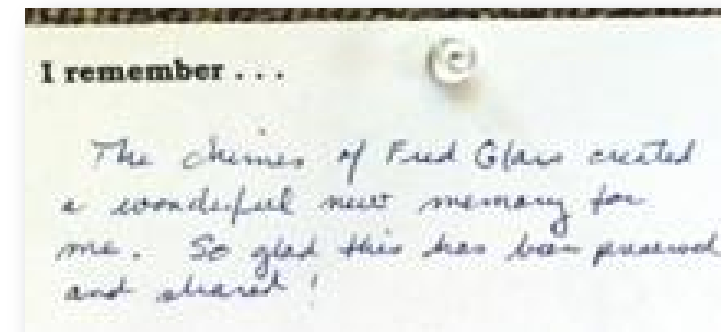 I remember . . .
The chimes of Fred Glass created
a wonderful new memory for
me. So glad this has been preserved
and shared !